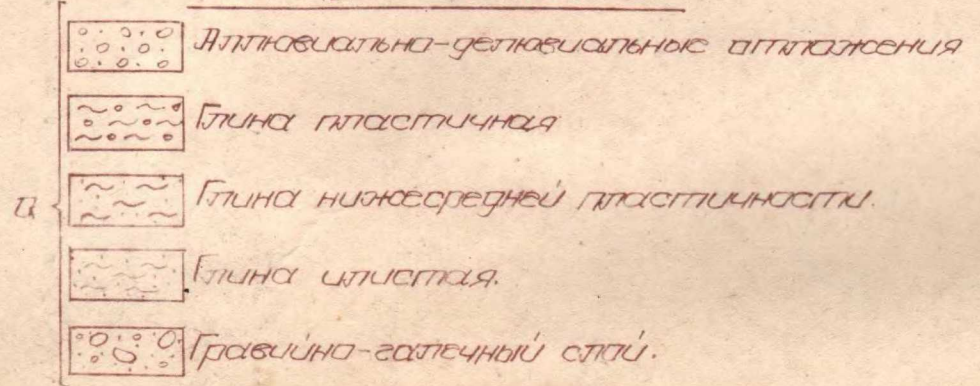 Аллювиально-делювиальные отложения
Глина пластичная
Глина нижесредней пластичности.
Глина илистая.
Гравийно-галечный слой.